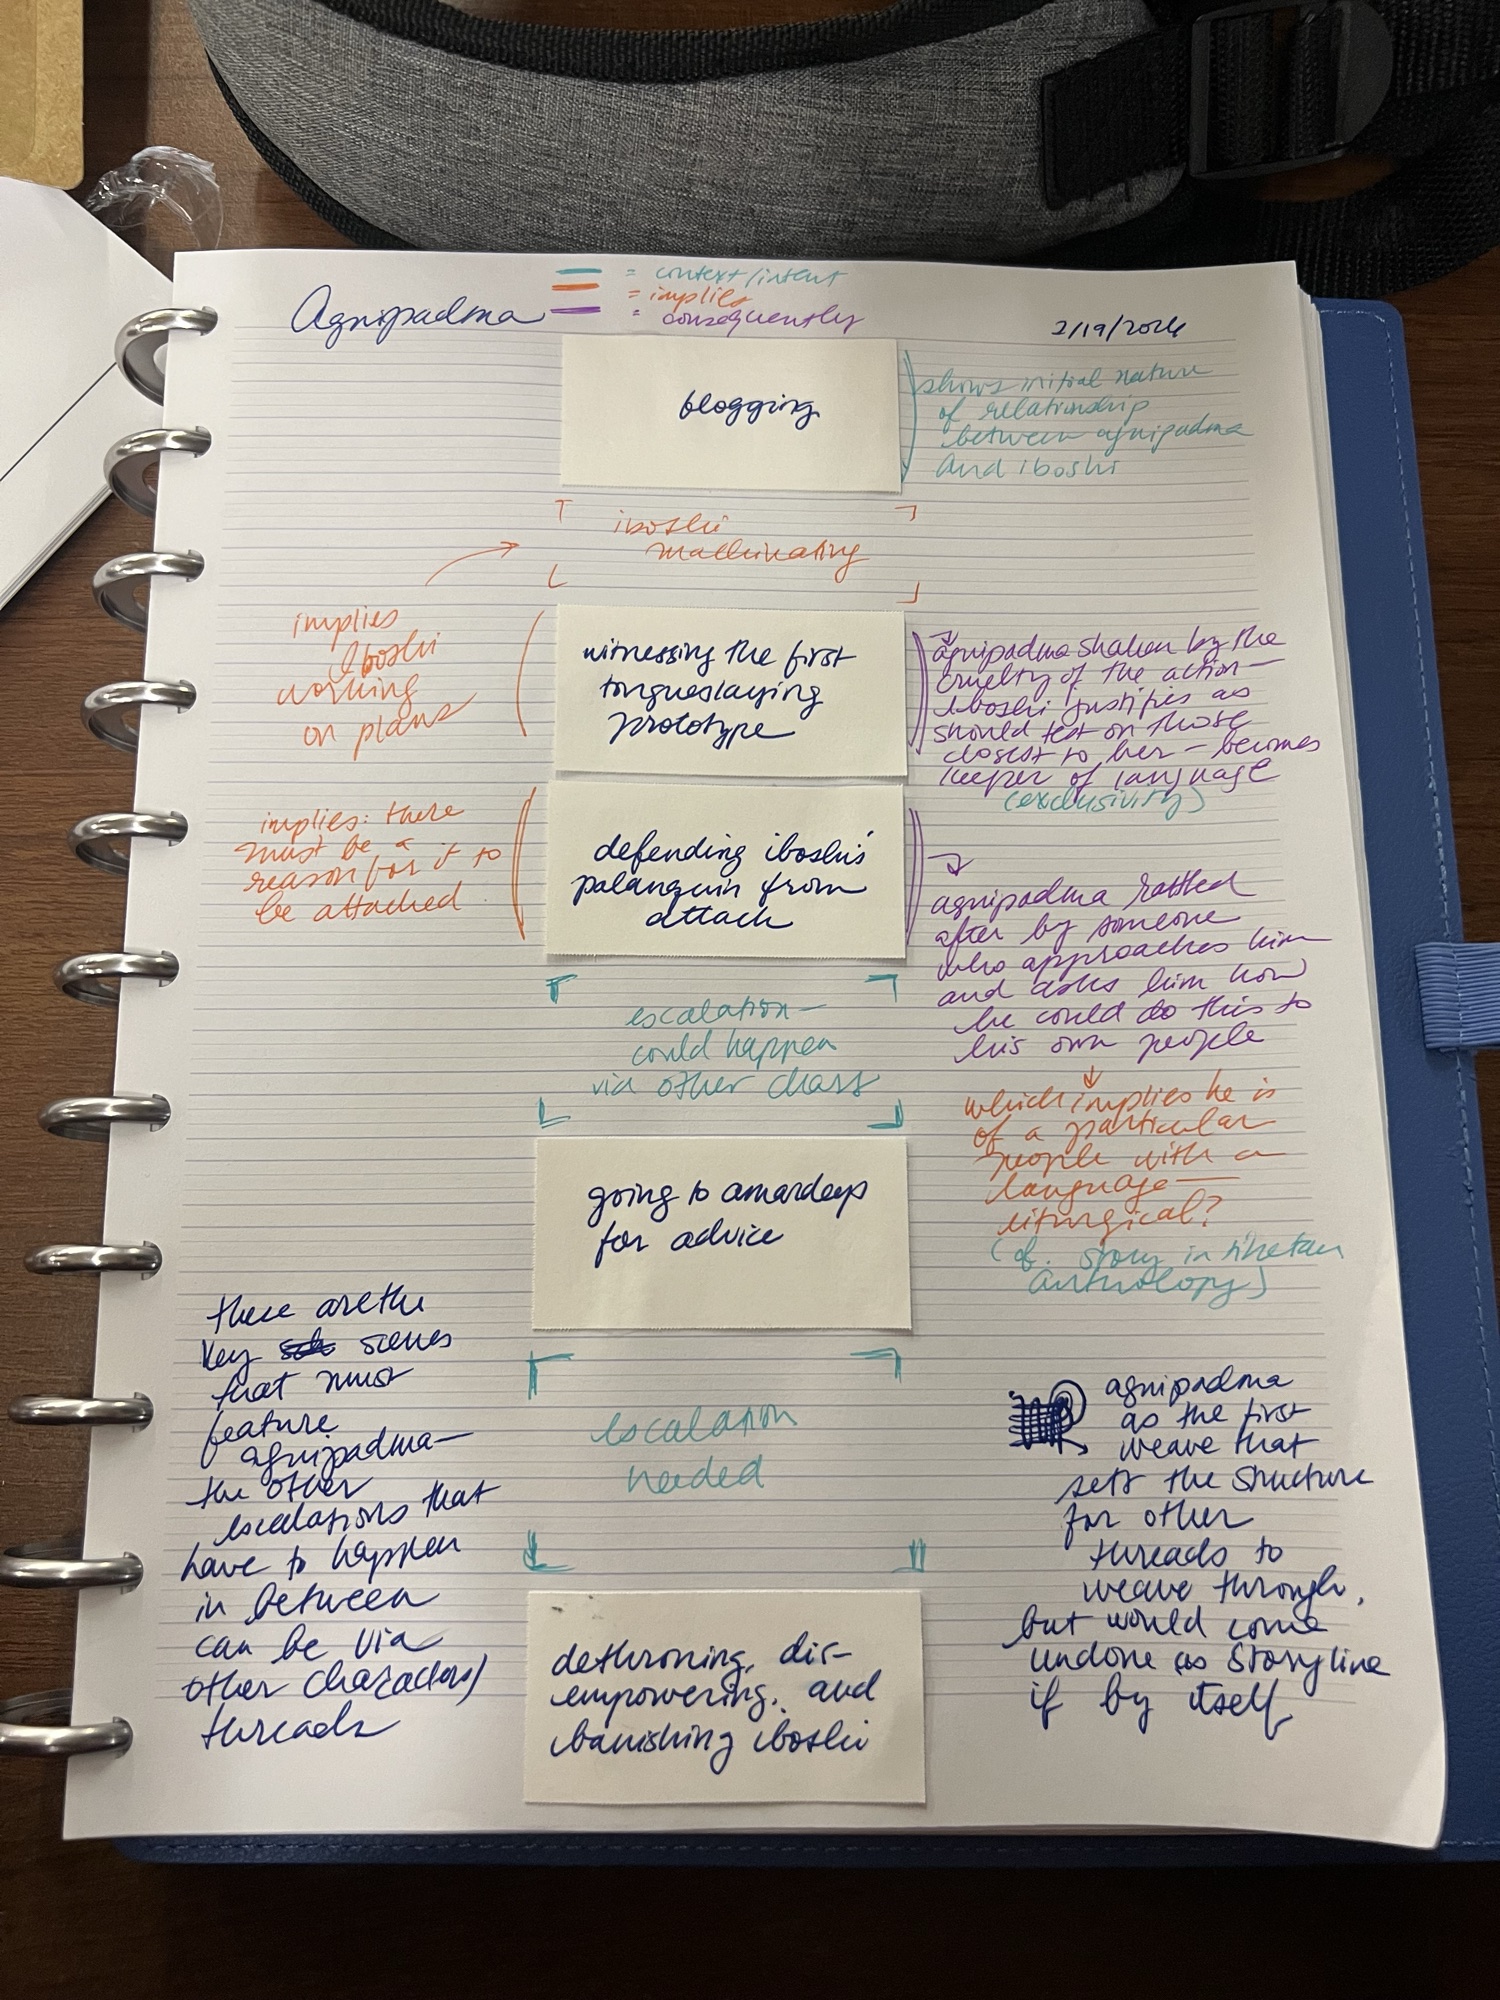 Agnipadma
= context/intent
= implies
= consequently
2/19/2024
blogging
shows initial nature
of relationship
between agnipadma
and iboshi
iboshi
machinating
implies
Iboshi
working
on plans
witnessing the first
tongueslaying
prototype
agnipadma shaken by the
cruelty of the action—
Iboshi justifies as
should test on those
closest to her – becomes
keeper of language
(exclusivity)
implies: there
must be a
reason for it to
be attached
defending iboshi's
palanquin from
attack
agnipadma rattled
after by someone
who approaches him
and asks him how
he could do this to
his own people
escalation—
could happen
via other chars
which implies he is
of a particular
people with a
language—
liturgical?
(cf. story in tibetan
anthology)
going to amardeep
for advice
these are the
key scenes
that must
feature
agnipadma—
the other
escalations that
have to happen
in between
can be via
other characters/
threads
escalation
needed
agnipadma
as the first
weave that
sets the structure
for other
threads to
weave through,
but would come
undone as storyline
if by itself
dethroning, dis-
empowering, and
banishing iboshi